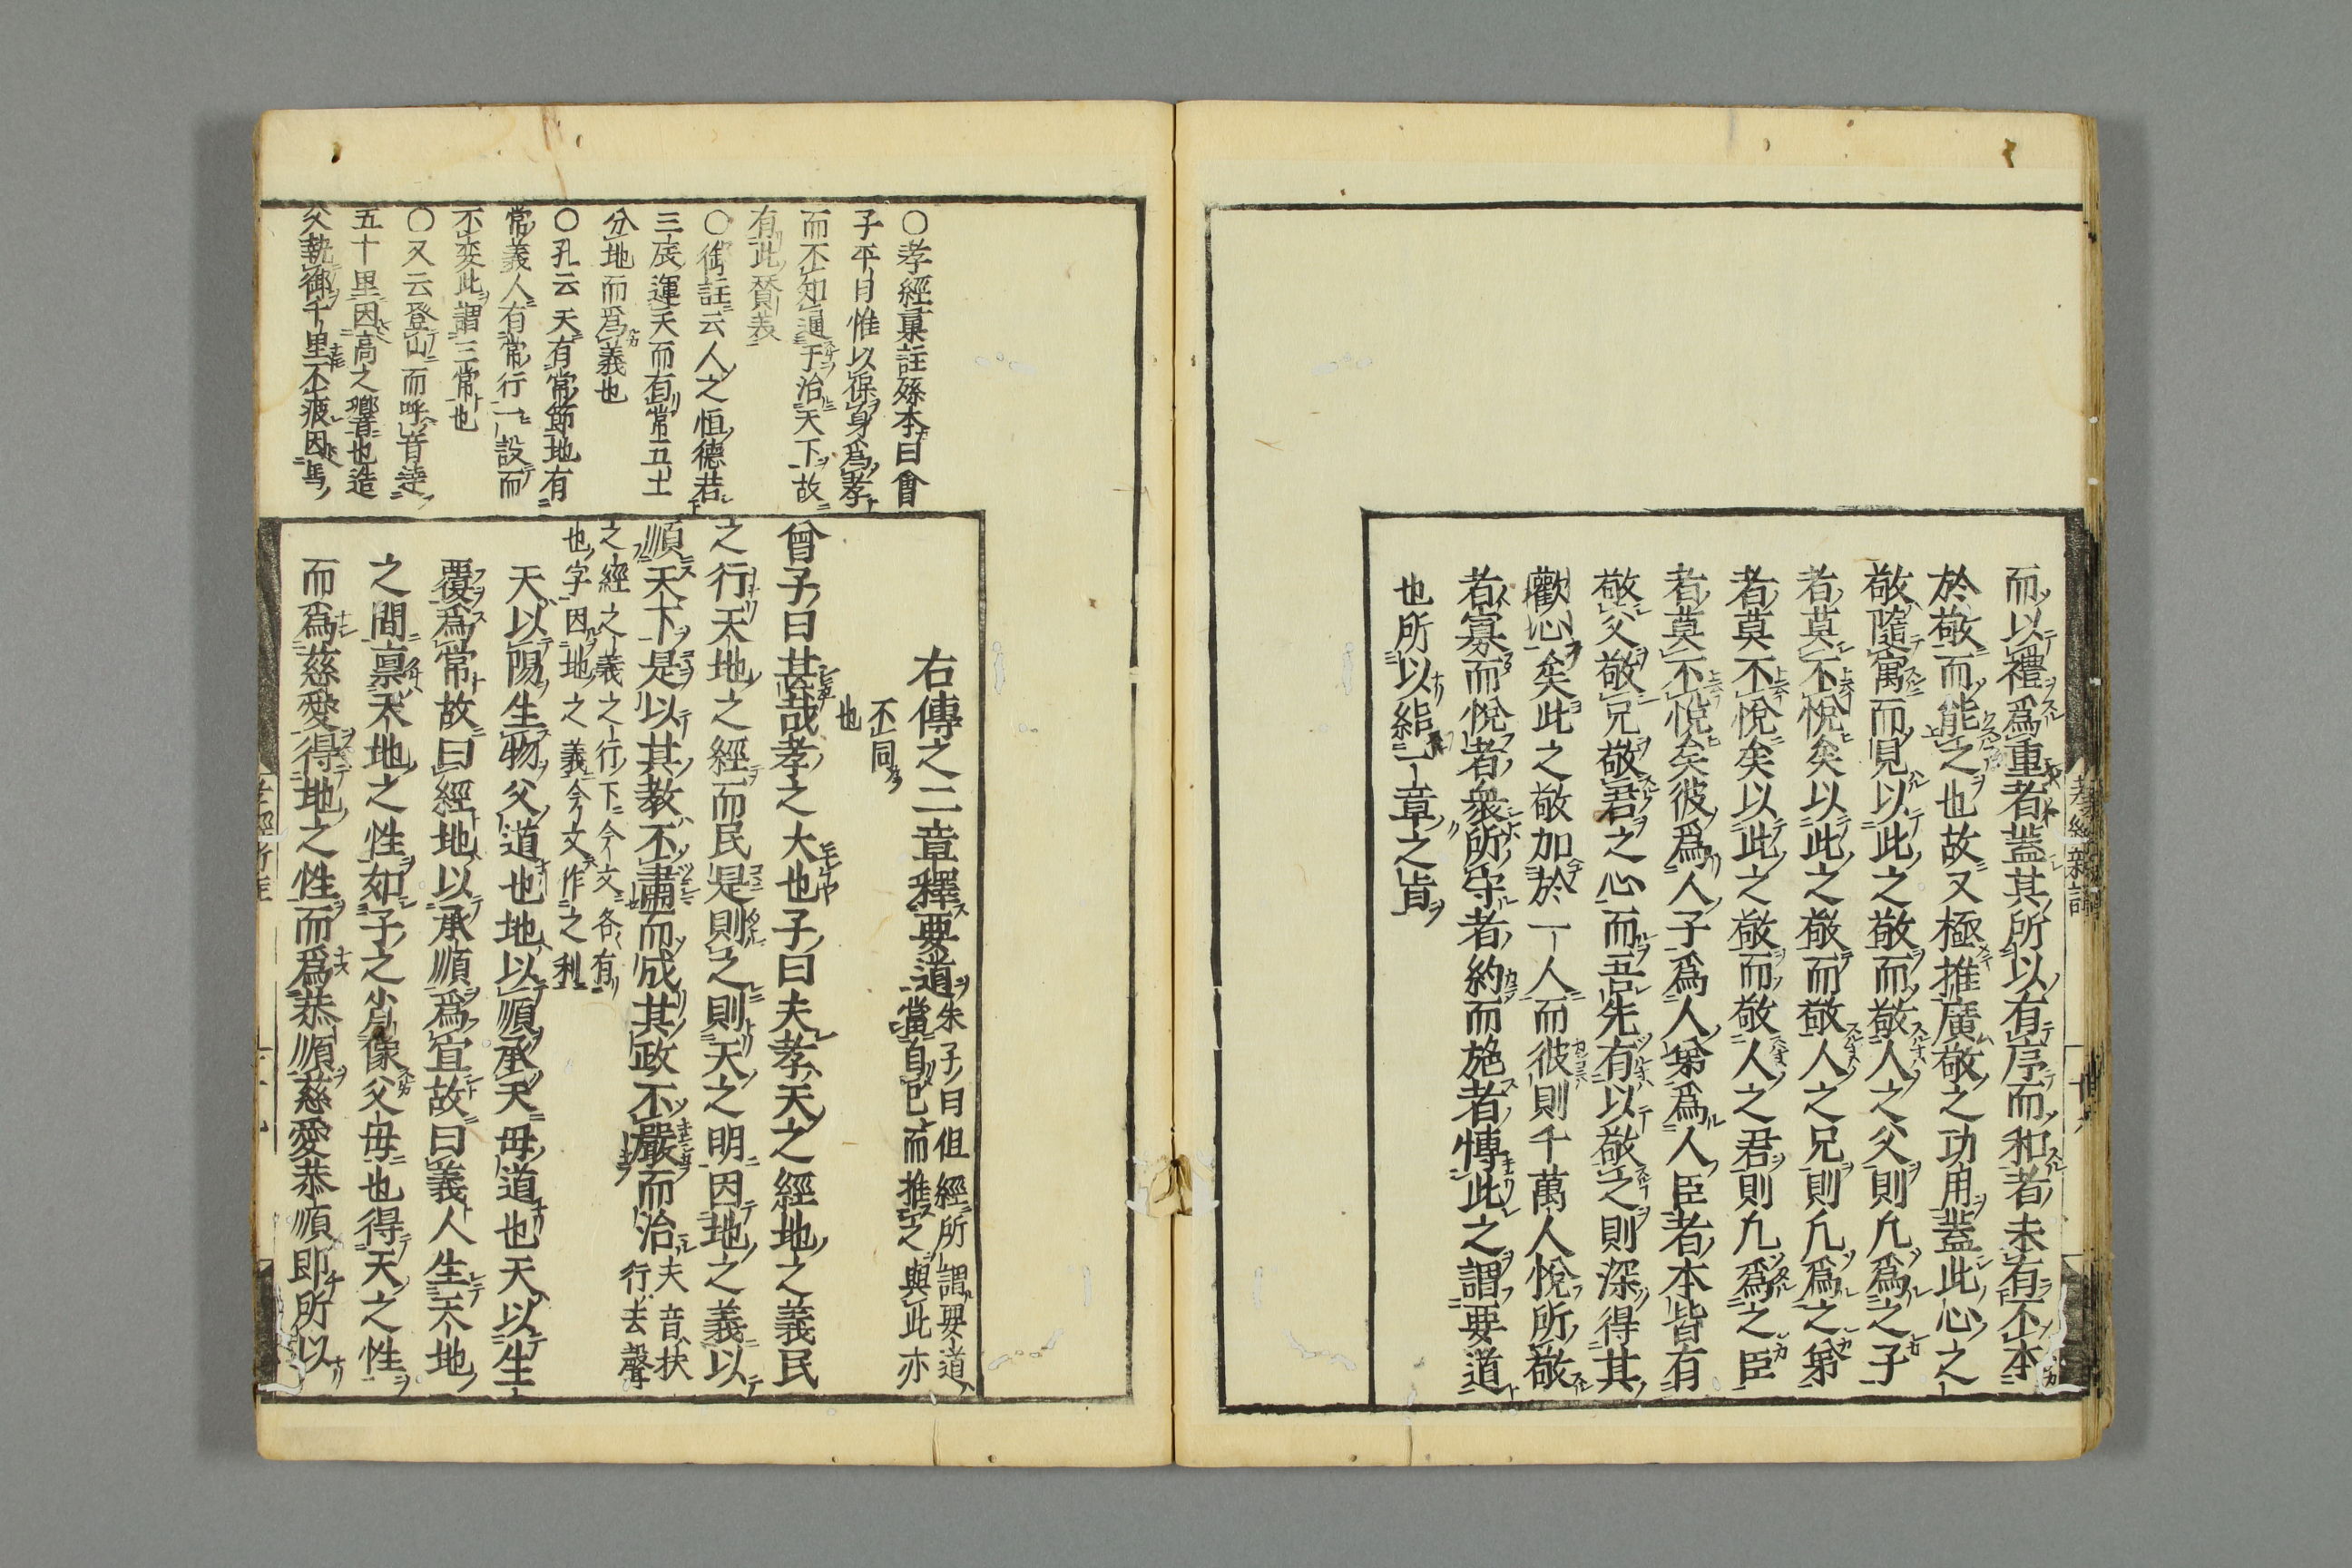 而以禮爲重者蓋其所以有序而和者未有不本
於敬而能之也故又極推廣敬之功用蓋此心之
敬隨寓而見以此之敬而敬人之父則凢爲之子
者莫不悅矣以此之敬而敬人之兄則凢爲之弟
者莫不悅矣以此之敬而敬人之君則凢爲之臣
者莫不悅矣彼爲人子爲人弟爲人臣者本皆有
敬父敬兄敬君之心而吾先有以敬之則深得其
歡心矣此之敬加於一人而彼則千萬人悅所敬
者寡而悅者衆所守者約而施者博此之謂要道
也所以結一章之旨
〇孝經彙註孫本曰曾
子平日惟以保身爲孝
而不知通于治天下故
有此贊美
〇御註云人之恒德若
三辰運天而有常五土
分地而爲義也
〇孔云天有常節地有
常義人有常行一設而
不変此謂三常也
〇又云登山而呼音達
五十里因高之響也造
父執御千里不疲因馬
右傳之二章釋要道朱子曰但經所謂要道
當自已而推之與此亦
不同
也
曾子曰甚哉孝之大也子曰夫孝天之經地之義民
之行天地之經而民是則之則天之明因地之義以
順天下是以其教不肅而成其政不嚴而治夫音扶
行去聲
之經之義之行下今文各有
也字因地之義今文作之利
天以陽生物父道也地以順承天母道也天以生
覆爲常故曰經地以承順爲宜故曰義人生天地
之間禀天地之性如子之肖像父母也得天之性
而爲慈愛得地之性而爲恭順慈愛恭順即所以